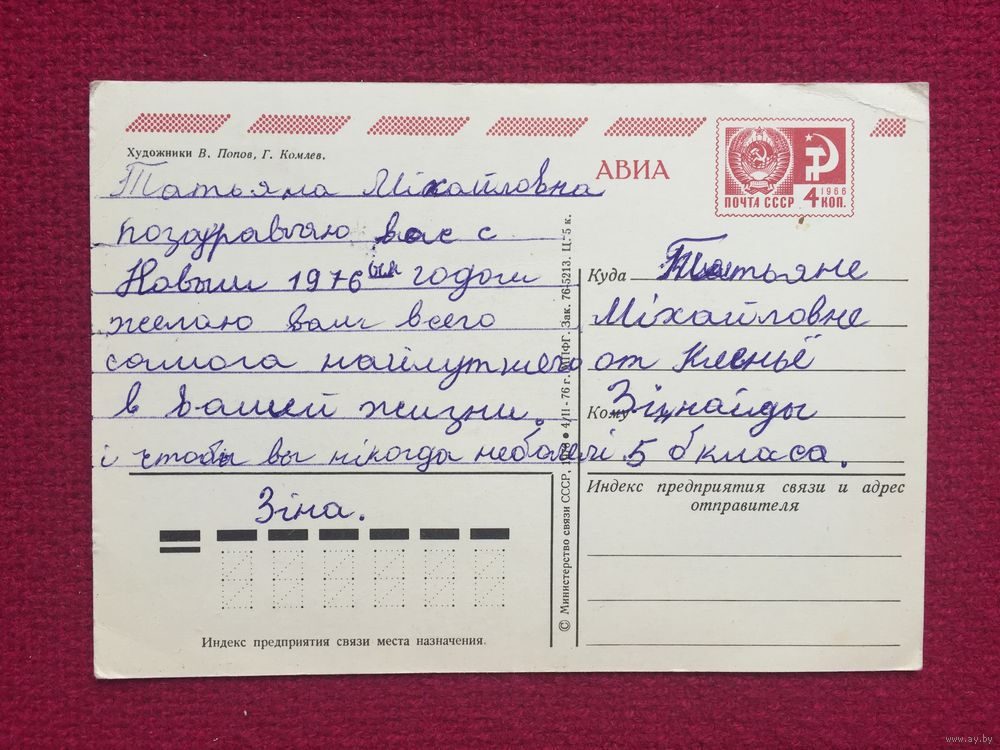 Художники В. Попов, Г. Комлев.
АВИА
ПОЧТА СССР 4 КОП.
1966
Татьяна Міхайловна
поздравляю вас с
Новым 1976 ым годом
желаю вам всего
самога найлутшего
в вашей жизни.
і чтобы вы нікогда неболелі
Зіна.
Куда Татьяне
Міхайловне
от
Кому Зіднайды
5 б класа.
Индекс предприятия связи и адрес
отправителя
© Министерство связи СССР, 4/II-76 г. ППФГ. Зак. 76-5213. Ц. 5 к.
Индекс предприятия связи места назначения.
www.ay.by